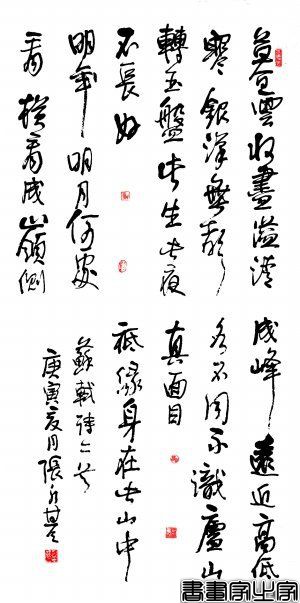 暮雲收盡溢清
寒銀漢無聲
轉玉盤此生此夜
不長好
明年明月何處
看橫看成嶺側
成峰遠近高低
各不同不識廬山
真面目
祇緣身在此山中
蘇軾詩二首
庚寅夏月張